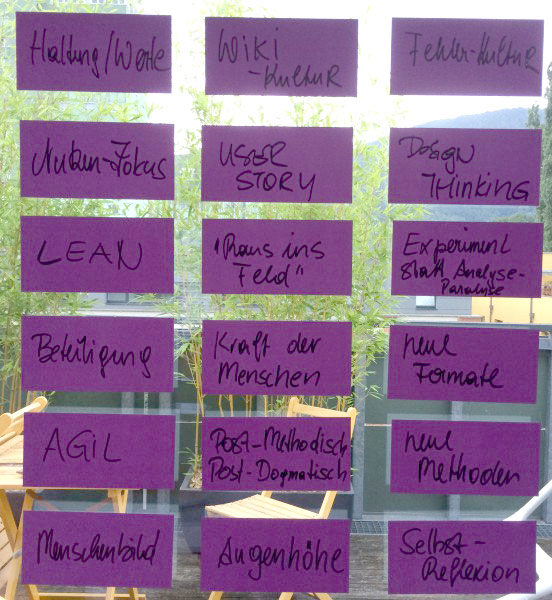 Haltung/Werte
Wiki
-Kultur
Fehler-Kultur
Nutzen-Fokus
USER
STORY
Design
THINKING
LEAN
"Raus ins
Feld"
Experiment
statt Analyse-
Paralyse
Beteiligung
Kraft der
Menschen
neue
Formate
AGIL
Post-Methodisch
Post-Dogmatisch
neue
Methoden
Menschenbild
Augenhöhe
Selbst-
Reflexion